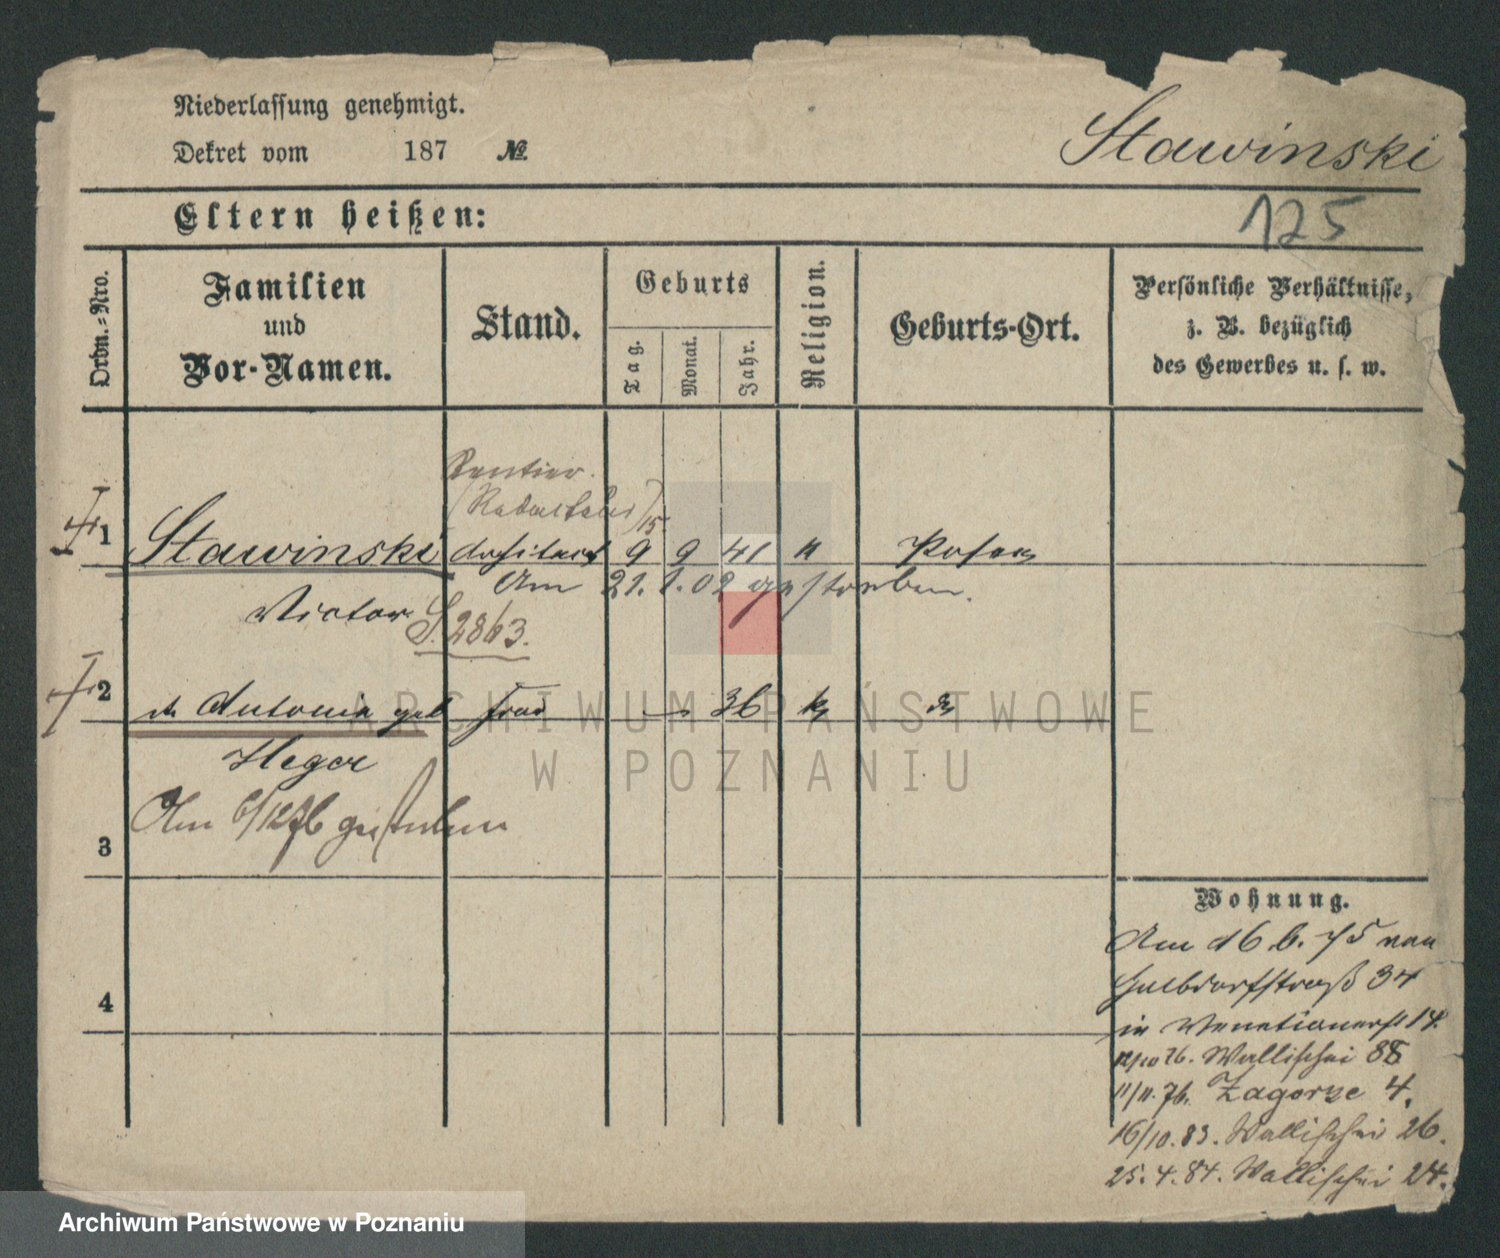 Niederlassung genehmigt.
Dekret vom 187 №
Stawinski
Eltern heißen:
125
Ordn.-Nro.
Familien
und
Vor-Namen.
Stand.
Geburts
Tag.
Monat.
Jahr.
Religion.
Geburts-Ort.
Persönliche Verhältnisse,
z. B. bezüglich
des Gewerbes u. s. w.
Rentier
1
Stawinski 9 9 41 k Posen
Am 21. 1. 02 gestorben.
Victor S. 2863.
2
Antonia geb Frau 36 k
Heger
Am 6/12 76 gestorben
3
4
Wohnung.
Am 6. 75 von
Halbdorfstraß 34
in Venetianerst 14.
12/10 76. Wallischei 88
11/11. 76. Zagorze 4.
16/10. 83. Wallischei 26.
25. 4. 84. Wallischei 24.
ARCHIWUM PAŃSTWOWE
W POZNANIU
Archiwum Państwowe w Poznaniu